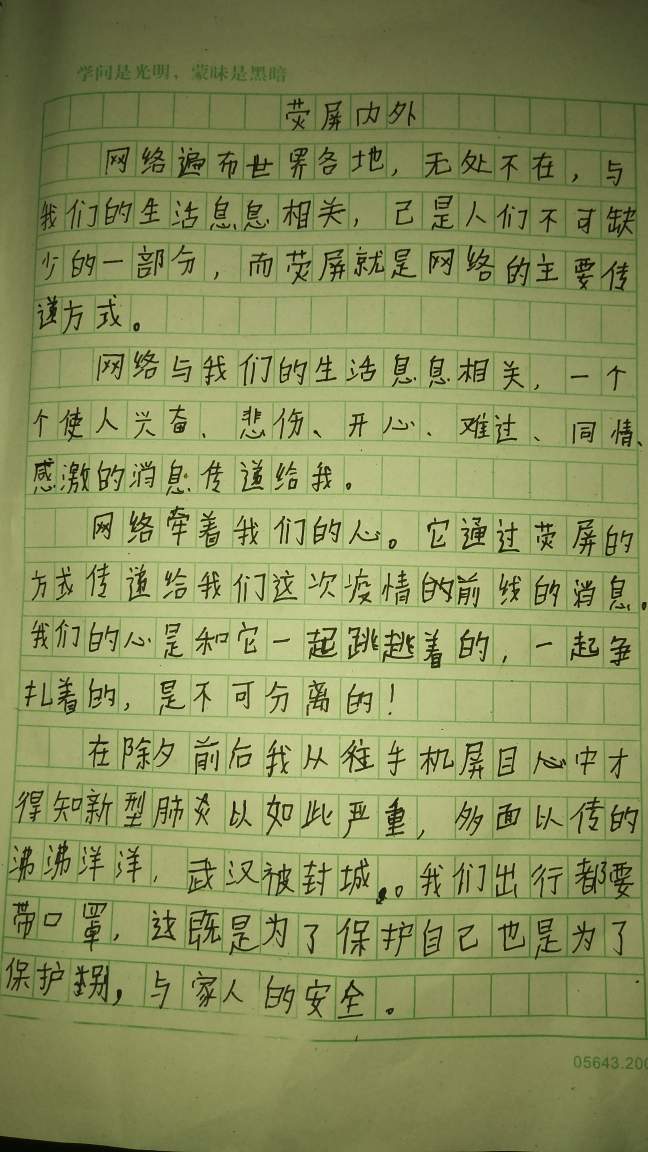 学问是光明，蒙昧是黑暗
荧屏内外
网络遍布世界各地，无处不在，与
我们的生活息息相关，己是人们不可缺
少的一部分，而荧屏就是网络的主要传
递方式。
网络与我们的生活息息相关，一个
个使人兴奋、悲伤、开心、难过、同情、
感激的消息传递给我。
网络牵着我们的心。它通过荧屏的
方式传递给我们这次疫情的前线的消息。
我们的心是和它一起跳越着的，一起争
扎着的，是不可分离的！
在除夕前后我从往手机屏目心中才
得知新型肺炎以如此严重，多面以传的
沸沸洋洋，武汉被封城。我们出行都要
带口罩，这既是为了保护自己也是为了
保护，与家人的安全。
05643.200